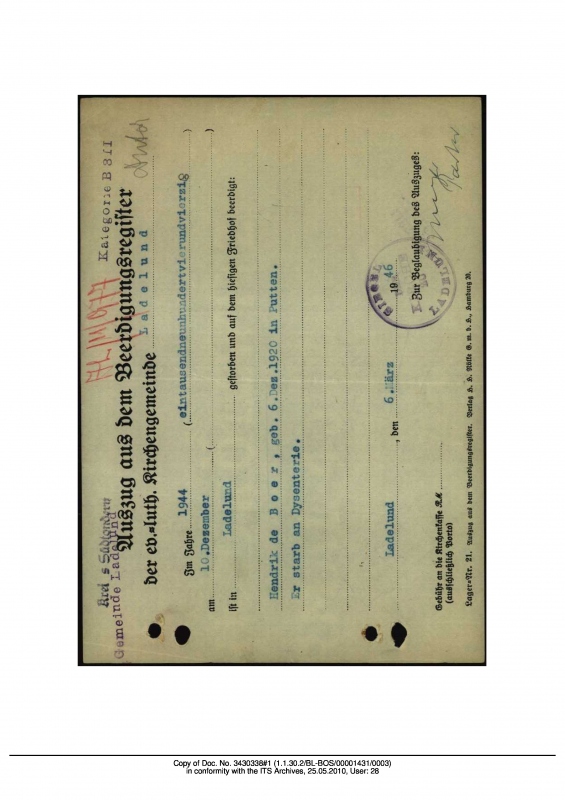 Kreis Südtondern
Gemeinde Ladelund
Kategorie B 3 II
Auszug aus dem Beerdigungsregister
der ev.=luth. Kirchengemeinde Ladelund
Im Jahre 1944 (eintausendneunhundertvierundvierzig)
am 10.Dezember ( )
ist in Ladelund gestorben und auf dem hiesigen Friedhof beerdigt:
Hendrik de Boer, geb. 6.Dez.1920 in Putten.
Er starb an Dysenterie.
Ladelund, den 6.März 1946
Zur Beglaubigung des Auszuges:
Gebühr an die Kirchenkasse R.M.
(ausschließlich Porto)
Lager=Nr. 21. Auszug aus dem Beerdigungsregister. Verlag H. H. Nölke G. m. b. H., Hamburg 20.
Copy of Doc. No. 3430338#1 (1.1.30.2/BL-BOS/00001431/0003)
in conformity with the ITS Archives, 25.05.2010, User: 28